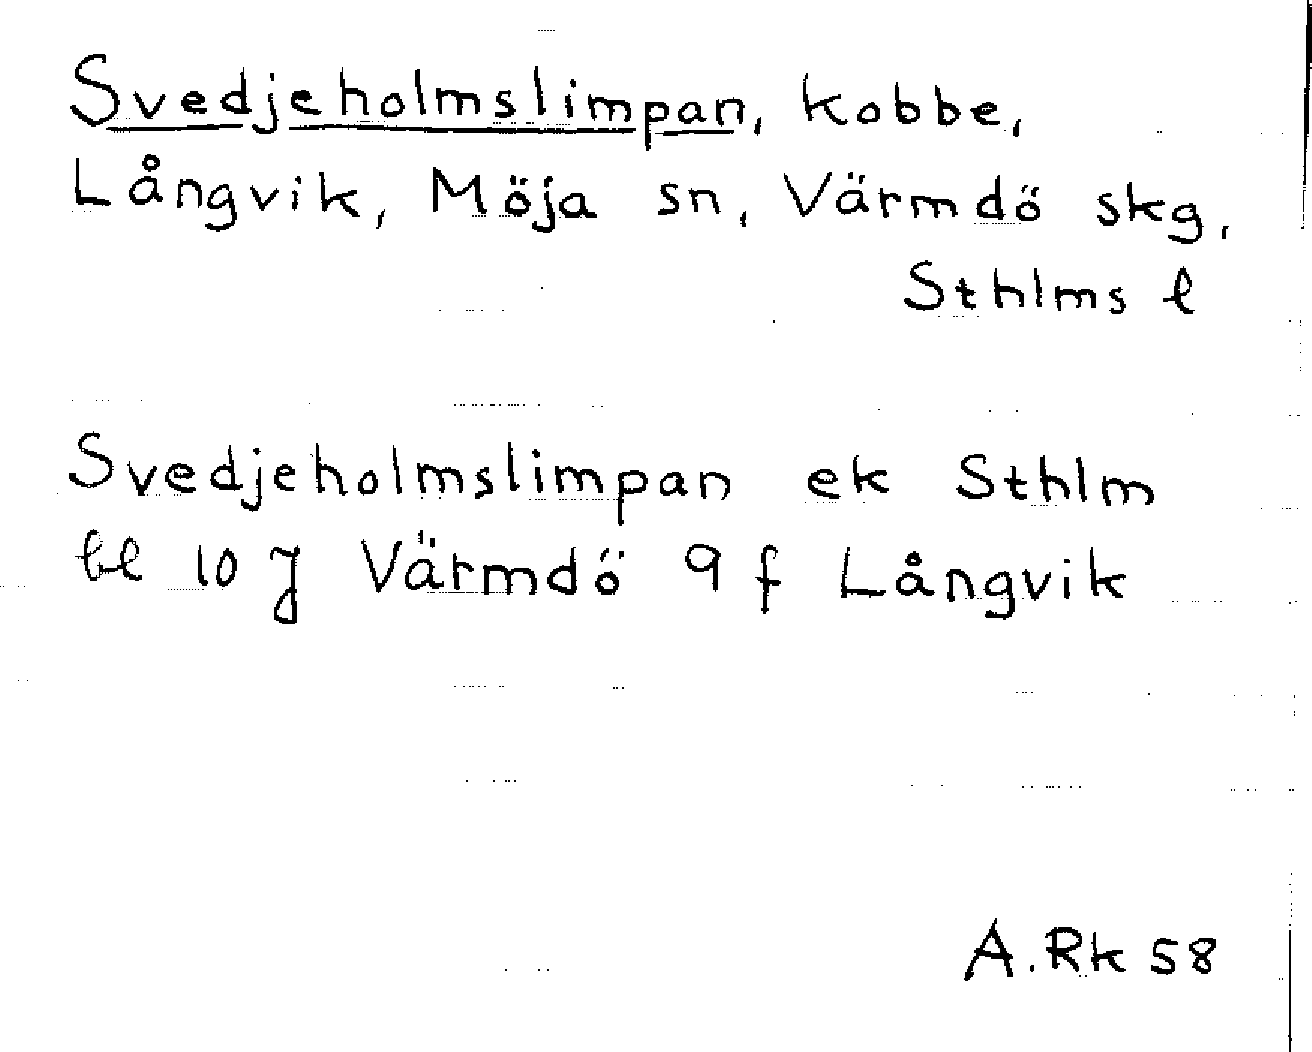 Svedjeholmslimpan, kobbe,
Långvik, Möja sn, Värmdö skg,
Sthlms l
Svedjeholmslimpan ek Sthlm
bl 10 J Värmdö 9 f Långvik
A. Rk 58